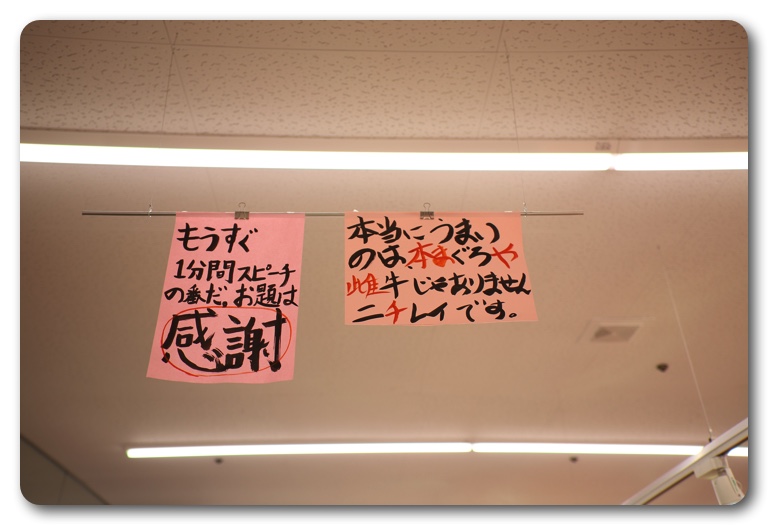 もうすぐ
1分間スピーチ
の番だ。お題は
感謝
本当にうまい
のは、本まぐろや
雌牛じゃありません
ニチレイです。